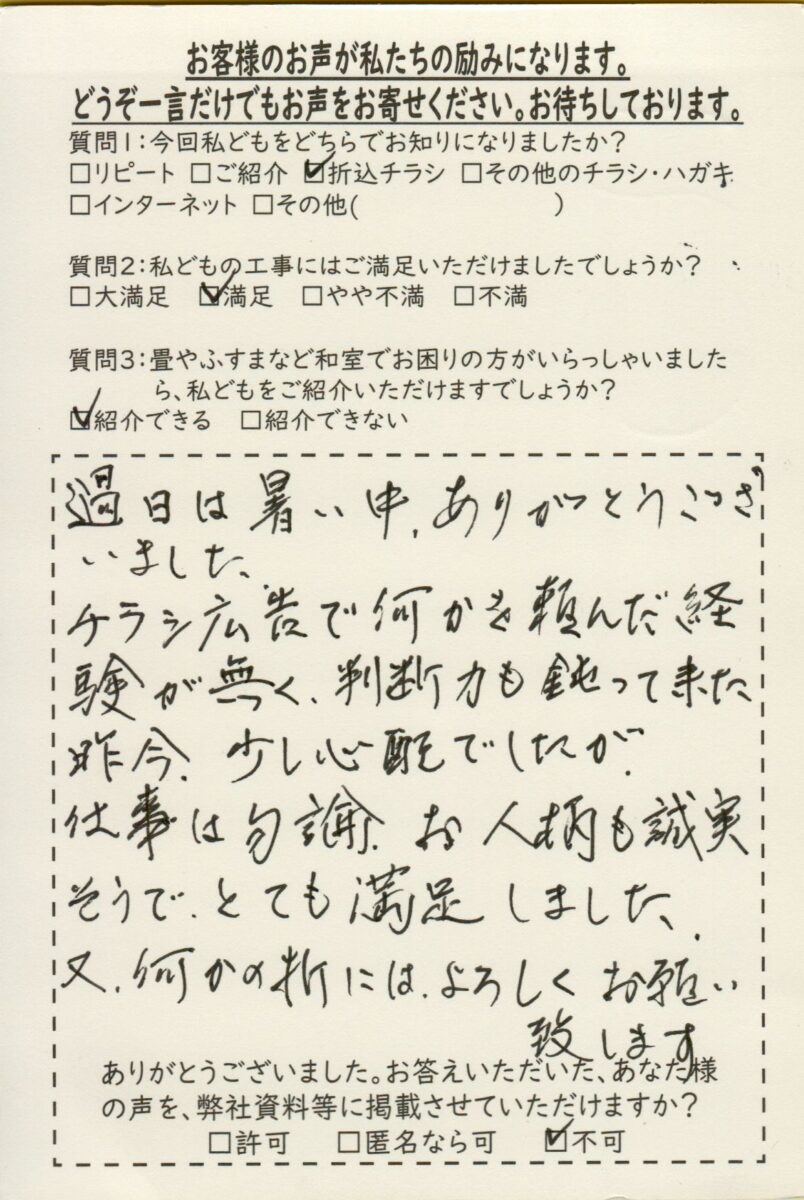 お客様のお声が私たちの励みになります。
どうぞ一言だけでもお声をお寄せください。お待ちしております。
質問1：今回私どもをどちらでお知りになりましたか？
□リピート □ご紹介 ☑折込チラシ □その他のチラシ・ハガキ
□インターネット □その他(　　　　　　　)
質問2：私どもの工事にはご満足いただけましたでしょうか？
□大満足 ☑満足 □やや不満 □不満
質問3：畳やふすまなど和室でお困りの方がいらっしゃいました
ら、私どもをご紹介いただけますでしょうか？
☑紹介できる □紹介できない
過日は暑い中、ありがとうござ
いました、
チラシ広告で何かを頼んだ経
験が無く、判断力も鈍って来た
昨今、少し心配でしたが、
仕事は勿論、お人柄も誠実
そうで、とても満足しました、
又、何かの折には、よろしくお願い
致します
ありがとうございました。お答えいただいた、あなた様
の声を、弊社資料等に掲載させていただけますか？
□許可 □匿名なら可 ☑不可